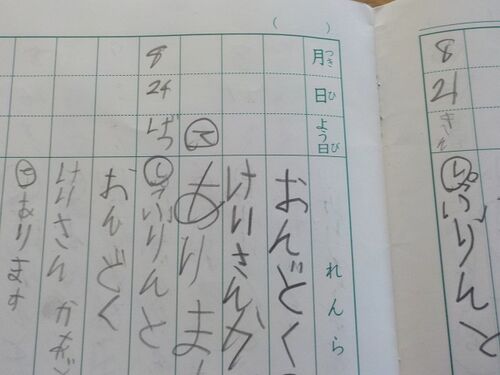 8
21
きん
し ぷりんと
( )
月 つき
日 ひ
よう日 び
れんら
おんどく
けいさんか
あり ま
8
24
げつ
し ぷりんと
おんどく
けいさん かあど
あります